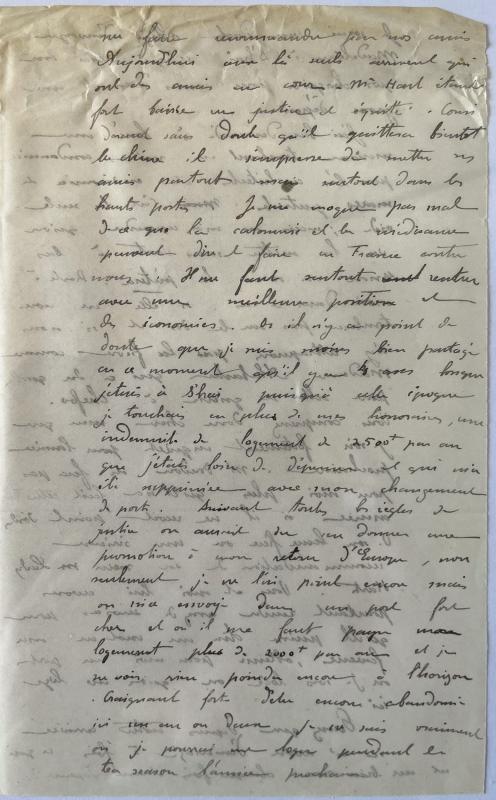 me faire recommander par nos amis
Aujourd'hui ceux là seuls arrivent qui
ont des amis en cour Mr Hart étant
fort baissé en justice et équité. Comme
sans doute qu'il quittera bientôt
la chine il s'empresse de mettre ses
amis partout mais surtout dans les
hauts postes Je me moque pas mal
de ce que la calomnie et la médisance
peuvent dire et faire en France contre
nous. Il me faut surtout rentrer
avec une meilleure position et
des économies. Or il n'y a point de
doute que je suis moins bien partagé
en ce moment qu'il y a 4 ans lorsque
j'étais à puisqu'à cette époque
je touchais en plus de mes honoraires, une
indemnité de logement de 2500f par an
que j'étais loin de dépenser et qui m'a
été supprimée avec mon changement
de port. Suivant toutes les règles de
justice on aurait dû me donner une
promotion à mon retour d'Europe, non
seulement je ne l'ai point encore mais
on m'a envoyé dans un port fort
cher et où il me faut payer mon
logement plus de 2000f par an et je
ne vois rien poindre encore à l'horizon
Craignant fort d'être encore abandonné
ici un an ou deux je ne sais vraiment
où je pourrai me loger pendant la
tea season l'année prochaine